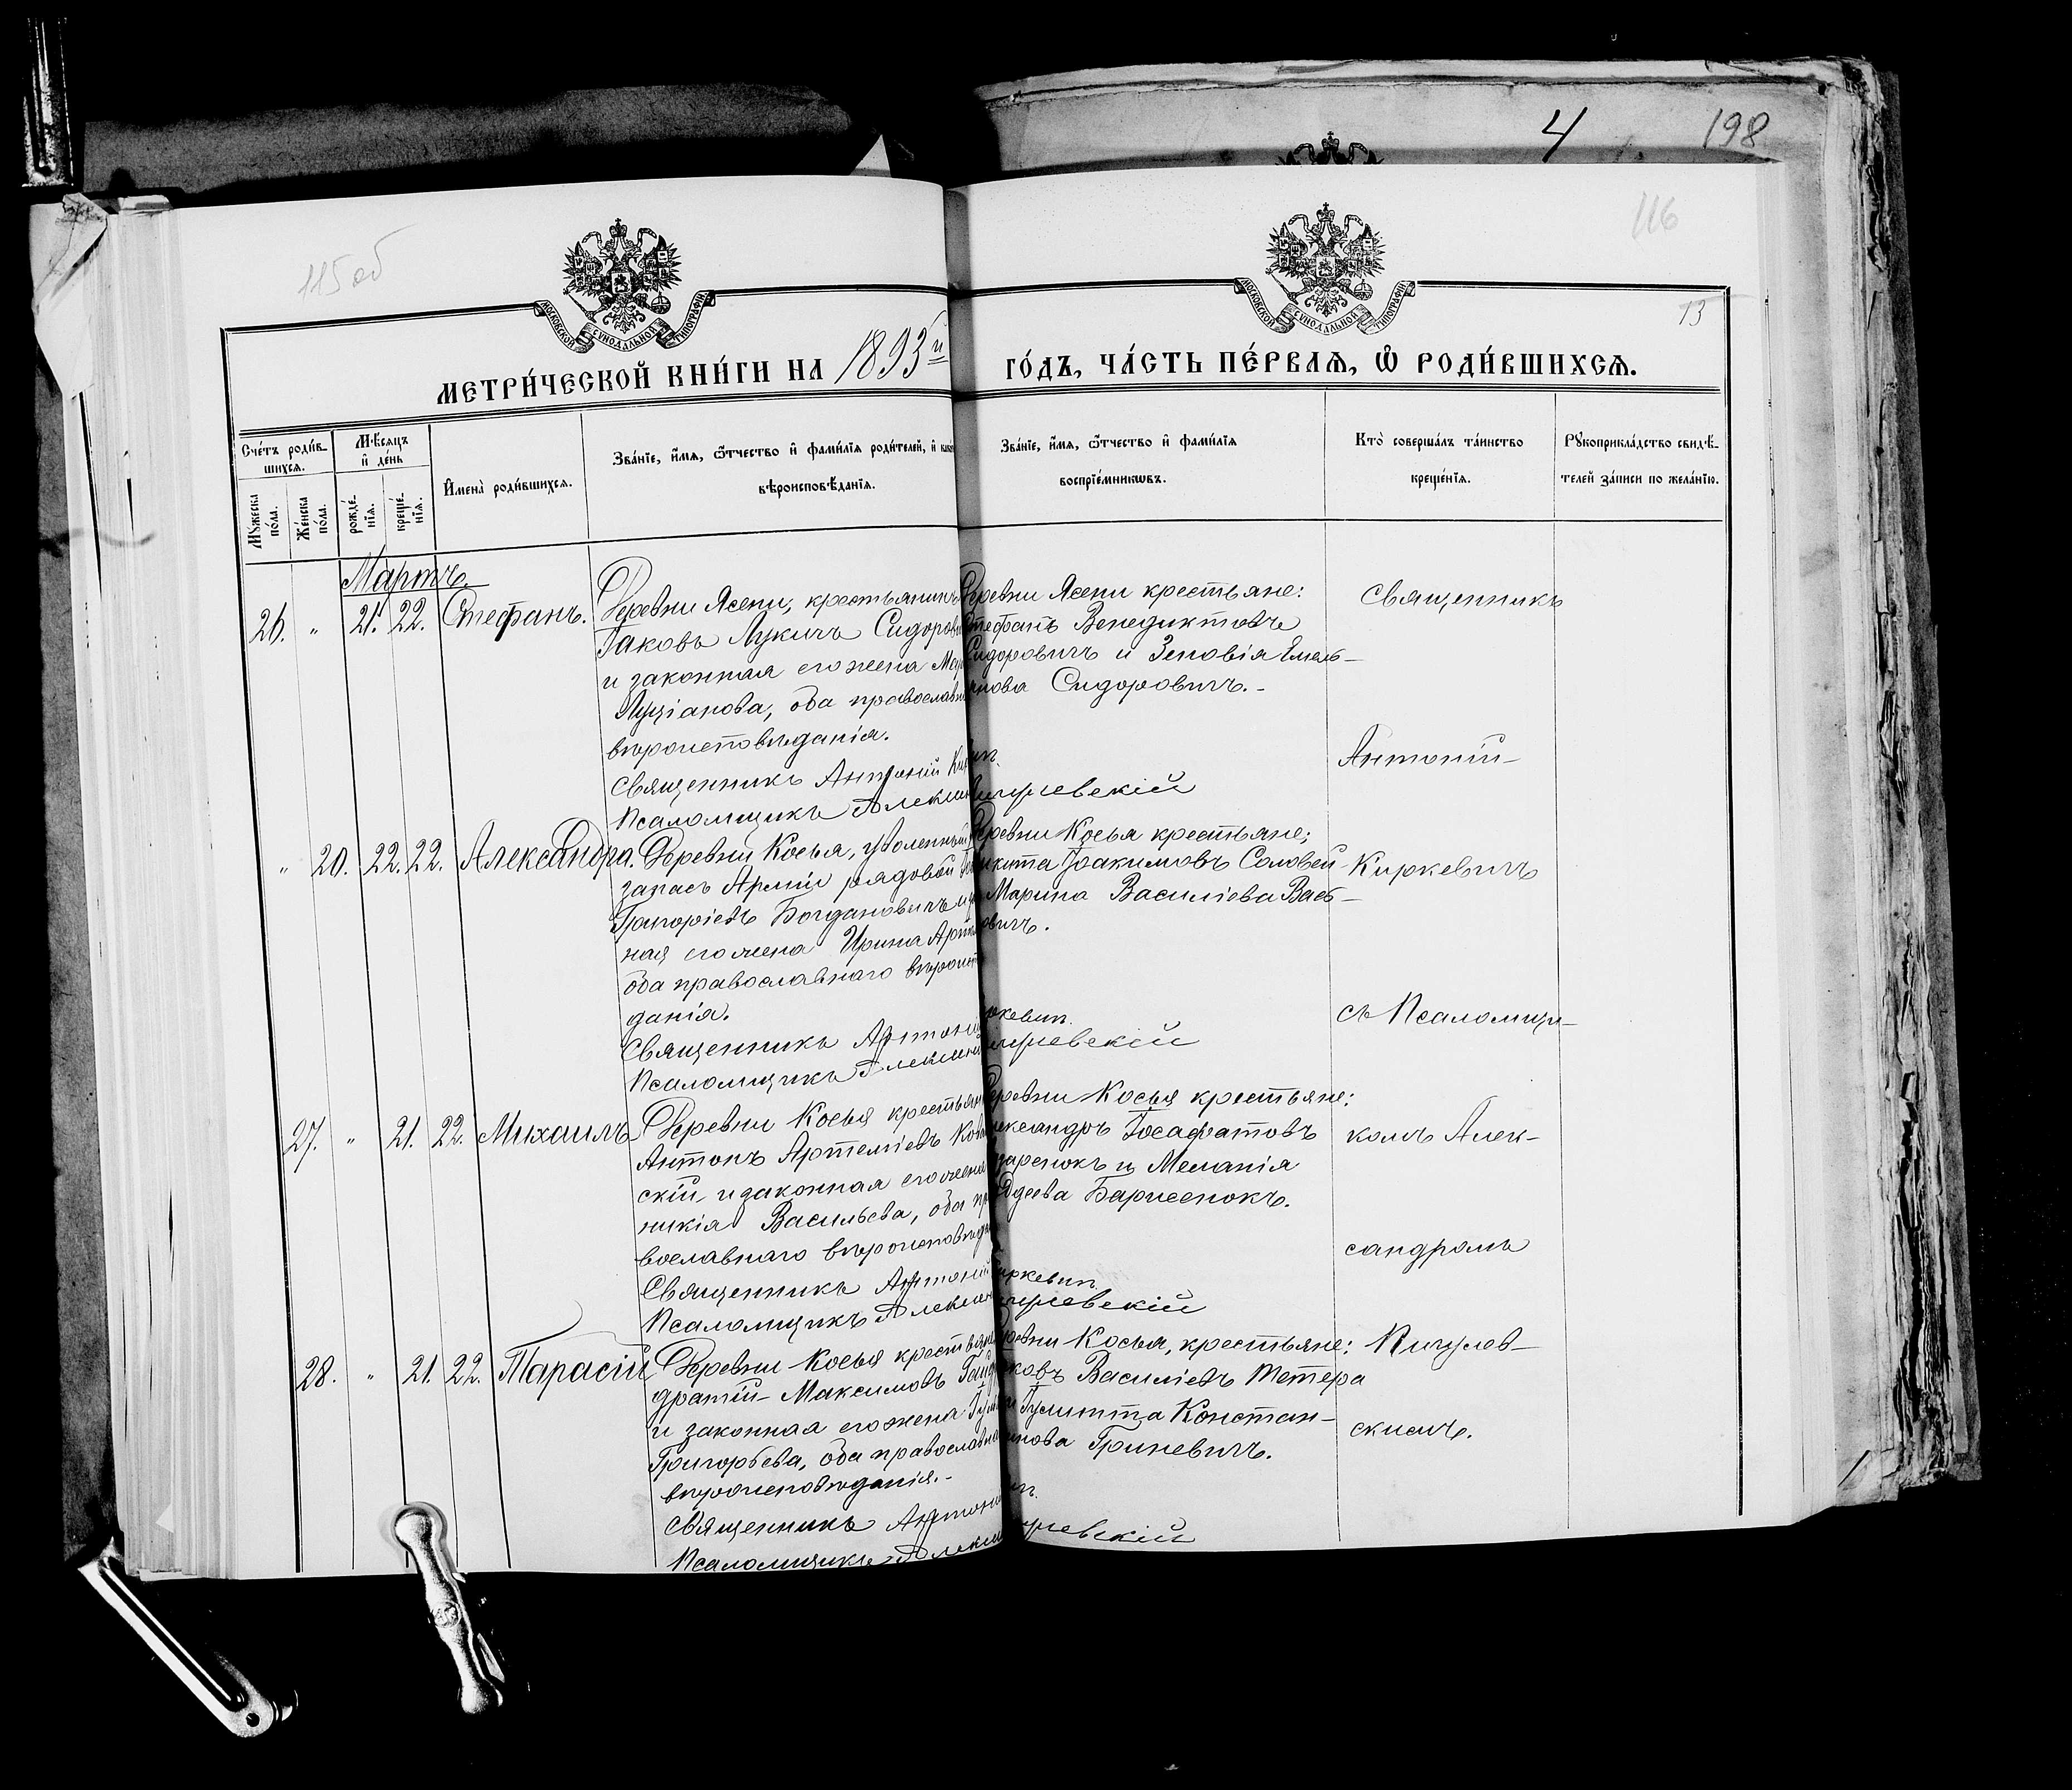 4 198
115 об
116
13
МОСКОВСКОЙ СѴНОДАЛЬНОЙ ТИПОГРАФІИ
МОСКОВСКОЙ СѴНОДАЛЬНОЙ ТИПОГРАФІИ
МЕТРИ́ЧЕСКОЙ КНИ́ГИ НА 1893й ГО́ДЪ, ЧА́СТЬ ПЕ́РВАѦ, Ѡ҆ РОДИ́ВШИХСѦ.
Сче́тъ роди́в-
шихсѧ.
Мꙋжеска
по́ла.
Же́нска
по́ла.
Мѣ́сѧцъ
и҆ де́нь
рожде́-
нїѧ.
креще́-
нїѧ.
И҆мена̀ роди́вшихсѧ.
Зва́нїе, и҆́мѧ, ѻ҆́тчество и҆ фами́лїѧ роди́телей, и҆
вѣроисповѣ́данїѧ.
Зва́нїе, и҆́мѧ, ѻ҆́тчество и҆ фами́лїѧ
воспрїе́мникѡвъ.
Кто̀ соверша́лъ та́инство
креще́нїѧ.
Рꙋкоприкла́дство свидѣ́-
телей за́писи по жела́нїю.
Мартъ.
26. " 21. 22. Стефанъ.
Деревни Ясени, крестьянинъ
Іаковъ Лукичъ Сидорови
и законная его жена
Луціанова, оба православн
вѣроисповѣданія.
Священникъ Антоній
Псаломщикъ
Деревни Ясени крестьяне:
Стефанъ Венедиктовъ
Сидоровичъ и Зеновія Емель-
янова Сидоровичъ.-
" 20. 22. 22. Александра.
Деревни Косья, уволенный
запасъ Арміи рядовой
Григоріевъ Богдановичъ и
ная его жена Ирина
оба православнаго вѣроиспо
данія.
Священникъ Антоні
Псаломщикъ
Деревни Косья крестьяне;
Никита Іоакимовъ Соловей
Марина Василіева Васъ-
овичъ.
27. " 21. 22. Михаилъ
Деревни Косья крестьян
Антонъ Артеміевъ
скій и законная его жена
никія Васильева, оба пр
вославнаго вѣроисповѣда
Священникъ Антоній Киркевич
Псаломщикъ
Деревни Косья крестьяне:
Александръ Іосафатовъ
и Меланія
Барисенокъ.
28. " 21. 22. Тарасій
Деревни Косья крестьяне
дратій Максимовъ
и законная его жена
Григорьева, оба православна
вѣроисповѣданія.-
Священникъ Антоній
Псаломщикъ
Деревни Косья, крестьяне:
Яковъ Василіевъ Тетера
и Іулитта Констан-
тинова Гриневичъ.
Священникъ
Антоній
Киркевичъ
съ Псаломщи-
комъ Алек-
сандромъ
Пигулев-
скимъ.